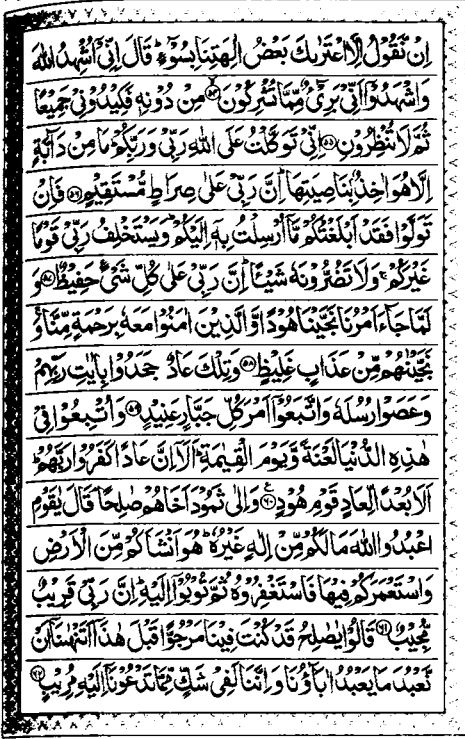 اِنْ نَّقُوْلُ اِلَّا اعْتَرٰىكَ بَعْضُ اٰلِهَتِنَا بِسُوْٓءٍ ؕ قَالَ اِنِّیْۤ اُشْهِدُ اللّٰهَ
وَ اشْهَدُوْۤا اَنِّیْ بَرِیْٓءٌ مِّمَّا تُشْرِكُوْنَ ﴿۵۴﴾ مِنْ دُوْنِهٖ فَكِیْدُوْنِیْ جَمِیْعًا
ثُمَّ لَا تُنْظِرُوْنِ ﴿۵۵﴾ اِنِّیْ تَوَكَّلْتُ عَلَی اللّٰهِ رَبِّیْ وَ رَبِّكُمْ ؕ مَا مِنْ دَآبَّةٍ
اِلَّا هُوَ اٰخِذٌۢ بِنَاصِیَتِهَا ؕ اِنَّ رَبِّیْ عَلٰی صِرَاطٍ مُّسْتَقِیْمٍ ﴿۵۶﴾ فَاِنْ
تَوَلَّوْا فَقَدْ اَبْلَغْتُكُمْ مَّاۤ اُرْسِلْتُ بِهٖۤ اِلَیْكُمْ ؕ وَ یَسْتَخْلِفُ رَبِّیْ قَوْمًا
غَیْرَكُمْ ۚ وَ لَا تَضُرُّوْنَهٗ شَیْـًٔا ؕ اِنَّ رَبِّیْ عَلٰی كُلِّ شَیْءٍ حَفِیْظٌ ﴿۵۷﴾ وَ
لَمَّا جَآءَ اَمْرُنَا نَجَّیْنَا هُوْدًا وَّ الَّذِیْنَ اٰمَنُوْا مَعَهٗ بِرَحْمَةٍ مِّنَّا ۚ وَ
نَجَّیْنٰهُمْ مِّنْ عَذَابٍ غَلِیْظٍ ﴿۵۸﴾ وَ تِلْكَ عَادٌ ۙ جَحَدُوْا بِاٰیٰتِ رَبِّهِمْ
وَ عَصَوْا رُسُلَهٗ وَ اتَّبَعُوْۤا اَمْرَ كُلِّ جَبَّارٍ عَنِیْدٍ ﴿۵۹﴾ وَ اُتْبِعُوْا فِیْ
هٰذِهِ الدُّنْیَا لَعْنَةً وَّ یَوْمَ الْقِیٰمَةِ ؕ اَلَاۤ اِنَّ عَادًا كَفَرُوْا رَبَّهُمْ ؕ
اَلَا بُعْدًا لِّعَادٍ قَوْمِ هُوْدٍ ﴿۶۰﴾ وَ اِلٰی ثَمُوْدَ اَخَاهُمْ صٰلِحًا ۘ قَالَ یٰقَوْمِ
اعْبُدُوا اللّٰهَ مَا لَكُمْ مِّنْ اِلٰهٍ غَیْرُهٗ ؕ هُوَ اَنْشَاَكُمْ مِّنَ الْاَرْضِ
وَ اسْتَعْمَرَكُمْ فِیْهَا فَاسْتَغْفِرُوْهُ ثُمَّ تُوْبُوْۤا اِلَیْهِ ؕ اِنَّ رَبِّیْ قَرِیْبٌ
مُّجِیْبٌ ﴿۶۱﴾ قَالُوْا یٰصٰلِحُ قَدْ كُنْتَ فِیْنَا مَرْجُوًّا قَبْلَ هٰذَاۤ اَتَنْهٰىنَاۤ اَنْ
نَّعْبُدَ مَا یَعْبُدُ اٰبَآؤُنَا وَ اِنَّنَا لَفِیْ شَكٍّ مِّمَّا تَدْعُوْنَاۤ اِلَیْهِ مُرِیْبٍ ﴿۶۲﴾